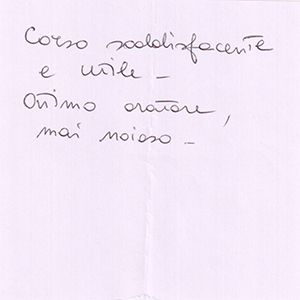 Corso soddisfacente
e utile -
Ottimo oratore,
mai noioso -